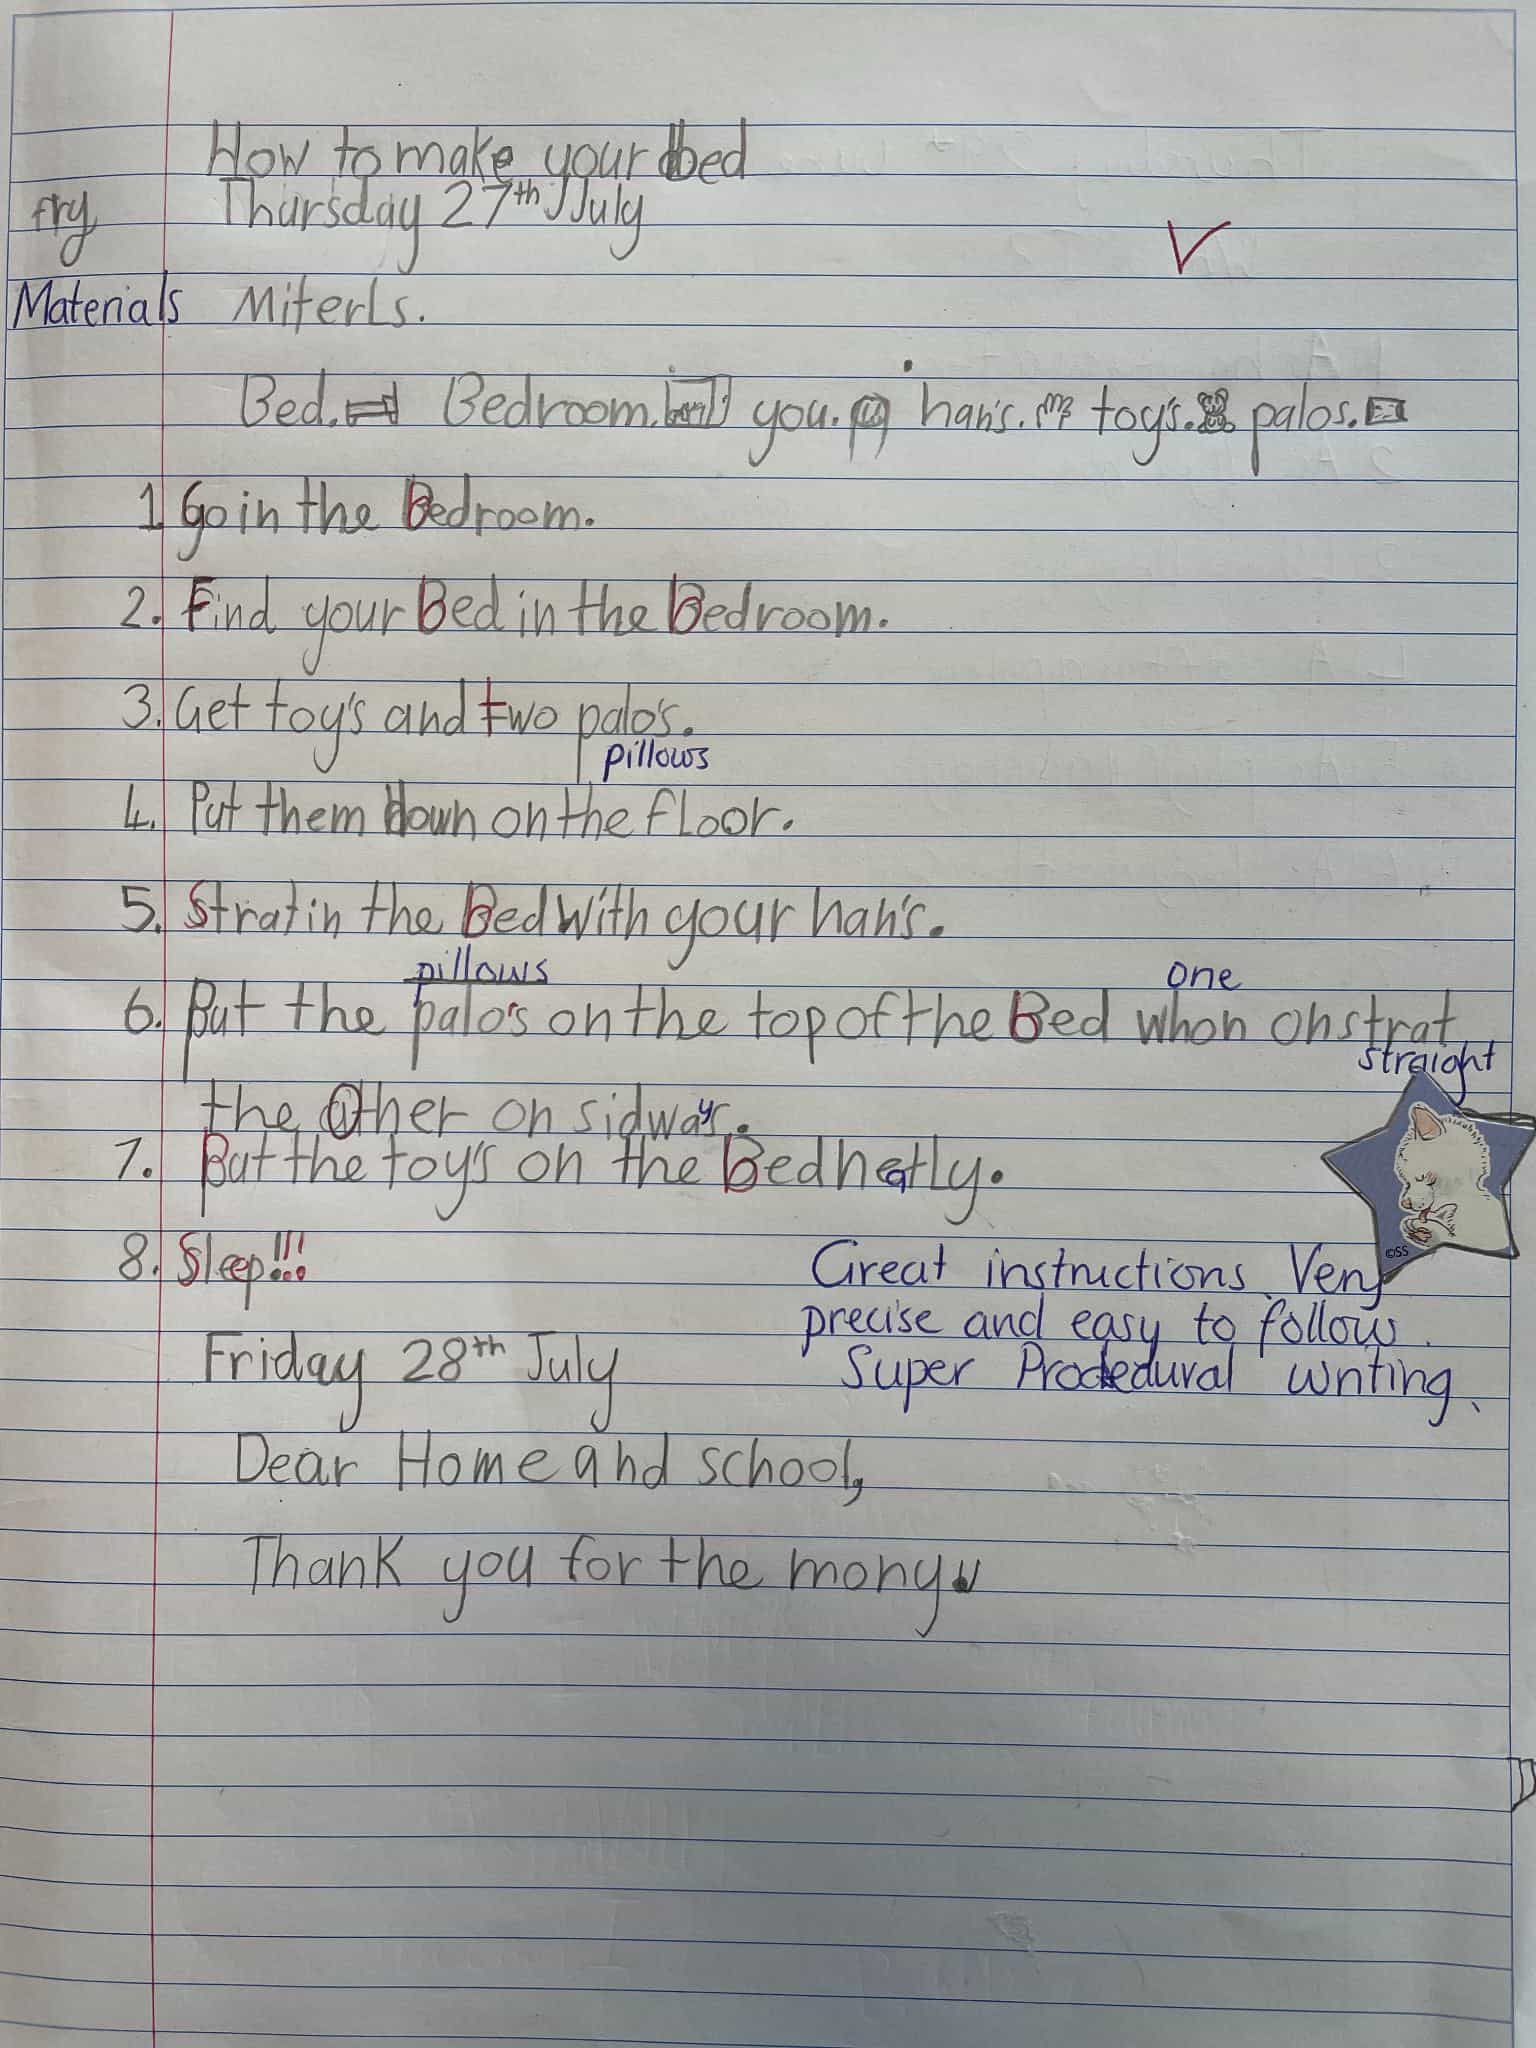 How to make your bed
fry Thursday 27th July
Materials Miterls.
Bed. Bedroom. you. han's. toy's. palos.
1 Go in the Bedroom.
2. Find your Bed in the Bedroom.
3. Get toy's and two palo's.
pillows
4. Put them down on the floor.
5. Stratin the Bed with your han's.
pillows one
6. Put the palo's on the top of the Bed whon on strat
straight
the other on sidways.
7. Put the toy's on the Bed neatly.
8. Sleep!!!
Great instructions. Very
precise and easy to follow.
Super Procedural writing.
©SS
Friday 28th July
Dear Home and school,
Thank you for the mony